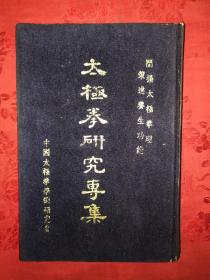 闡揚太極拳理
報進養生功能
太極拳研究專集
中國太極拳學術研究會